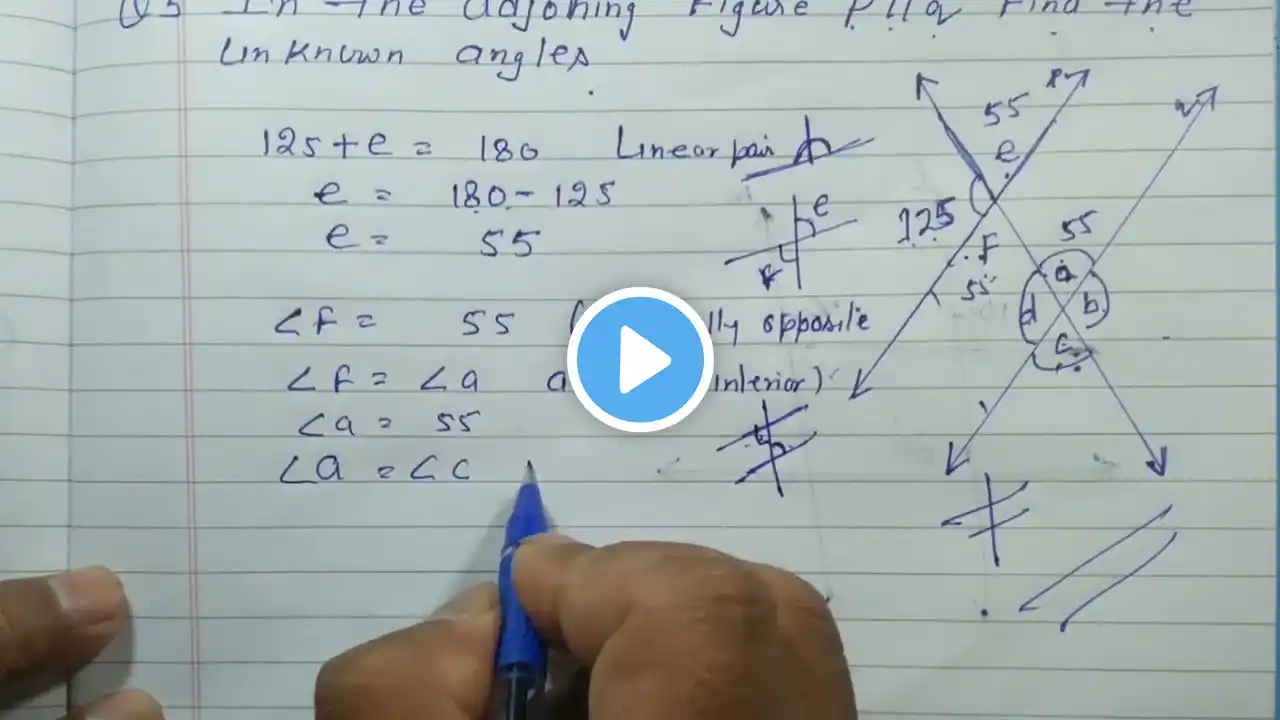 Q5 In the adjoning Figure P11q Find the
unknown angles.
125+e = 180 Linear pair
e = 180 - 125
e = 55
∠F = 55 lly opposite
∠F = ∠a a interior)
∠a = 55
∠a = ∠c
e
F
55
P
q
e
125
F
55
55
a
d
b
c